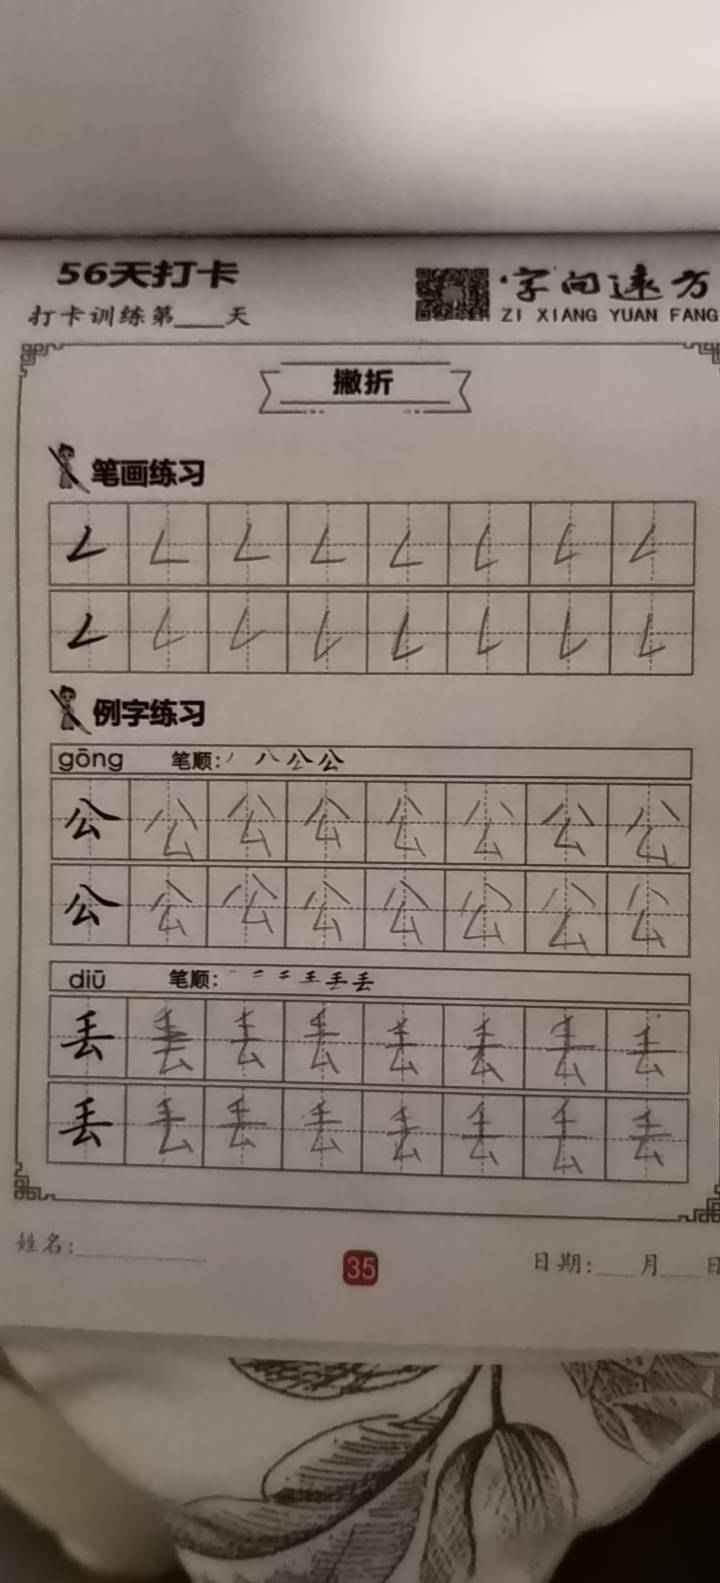 56天打卡
字向远方
打卡训练第____天
ZI XIANG YUAN FANG
撇折
笔画练习
例字练习
gōng 笔顺:丿 八 公 公
公 公 公 公 公 公 公 公
公 公 公 公 公 公 公 公
diū 笔顺:
丢 丢 丢 丢 丢 丢 丢 丢
丢 丢 丢 丢 丢 丢 丢 丢
姓名:__________
35
日期:___月___日